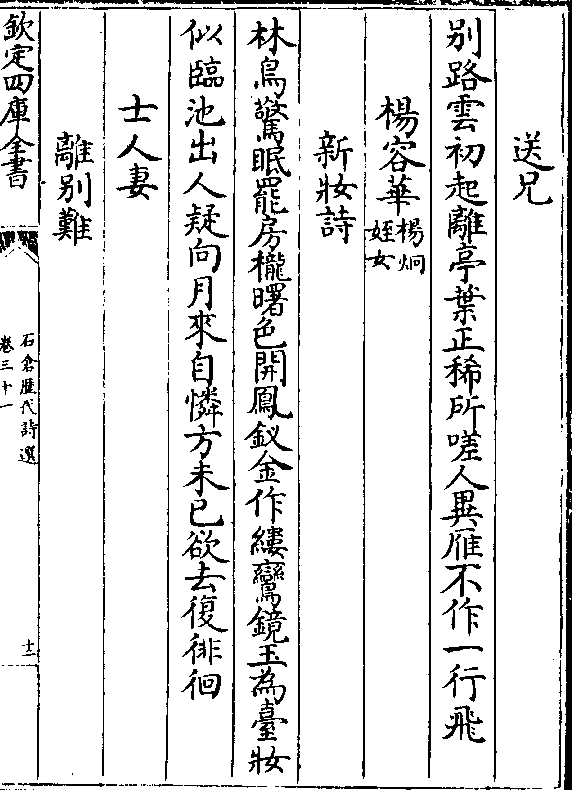 送兄
別路雲初起離亭葉正稀所嗟人異雁不作一行飛
楊容華楊炯姪女
新妝詩
林鳥驚眠罷房櫳曙色開鳳釵金作縷鸞鏡玉為臺妝
似臨池出人疑向月來自憐方未已欲去復徘徊
士人妻
離別難
欽定四庫全書
石倉歷代詩選
卷三十一
十二